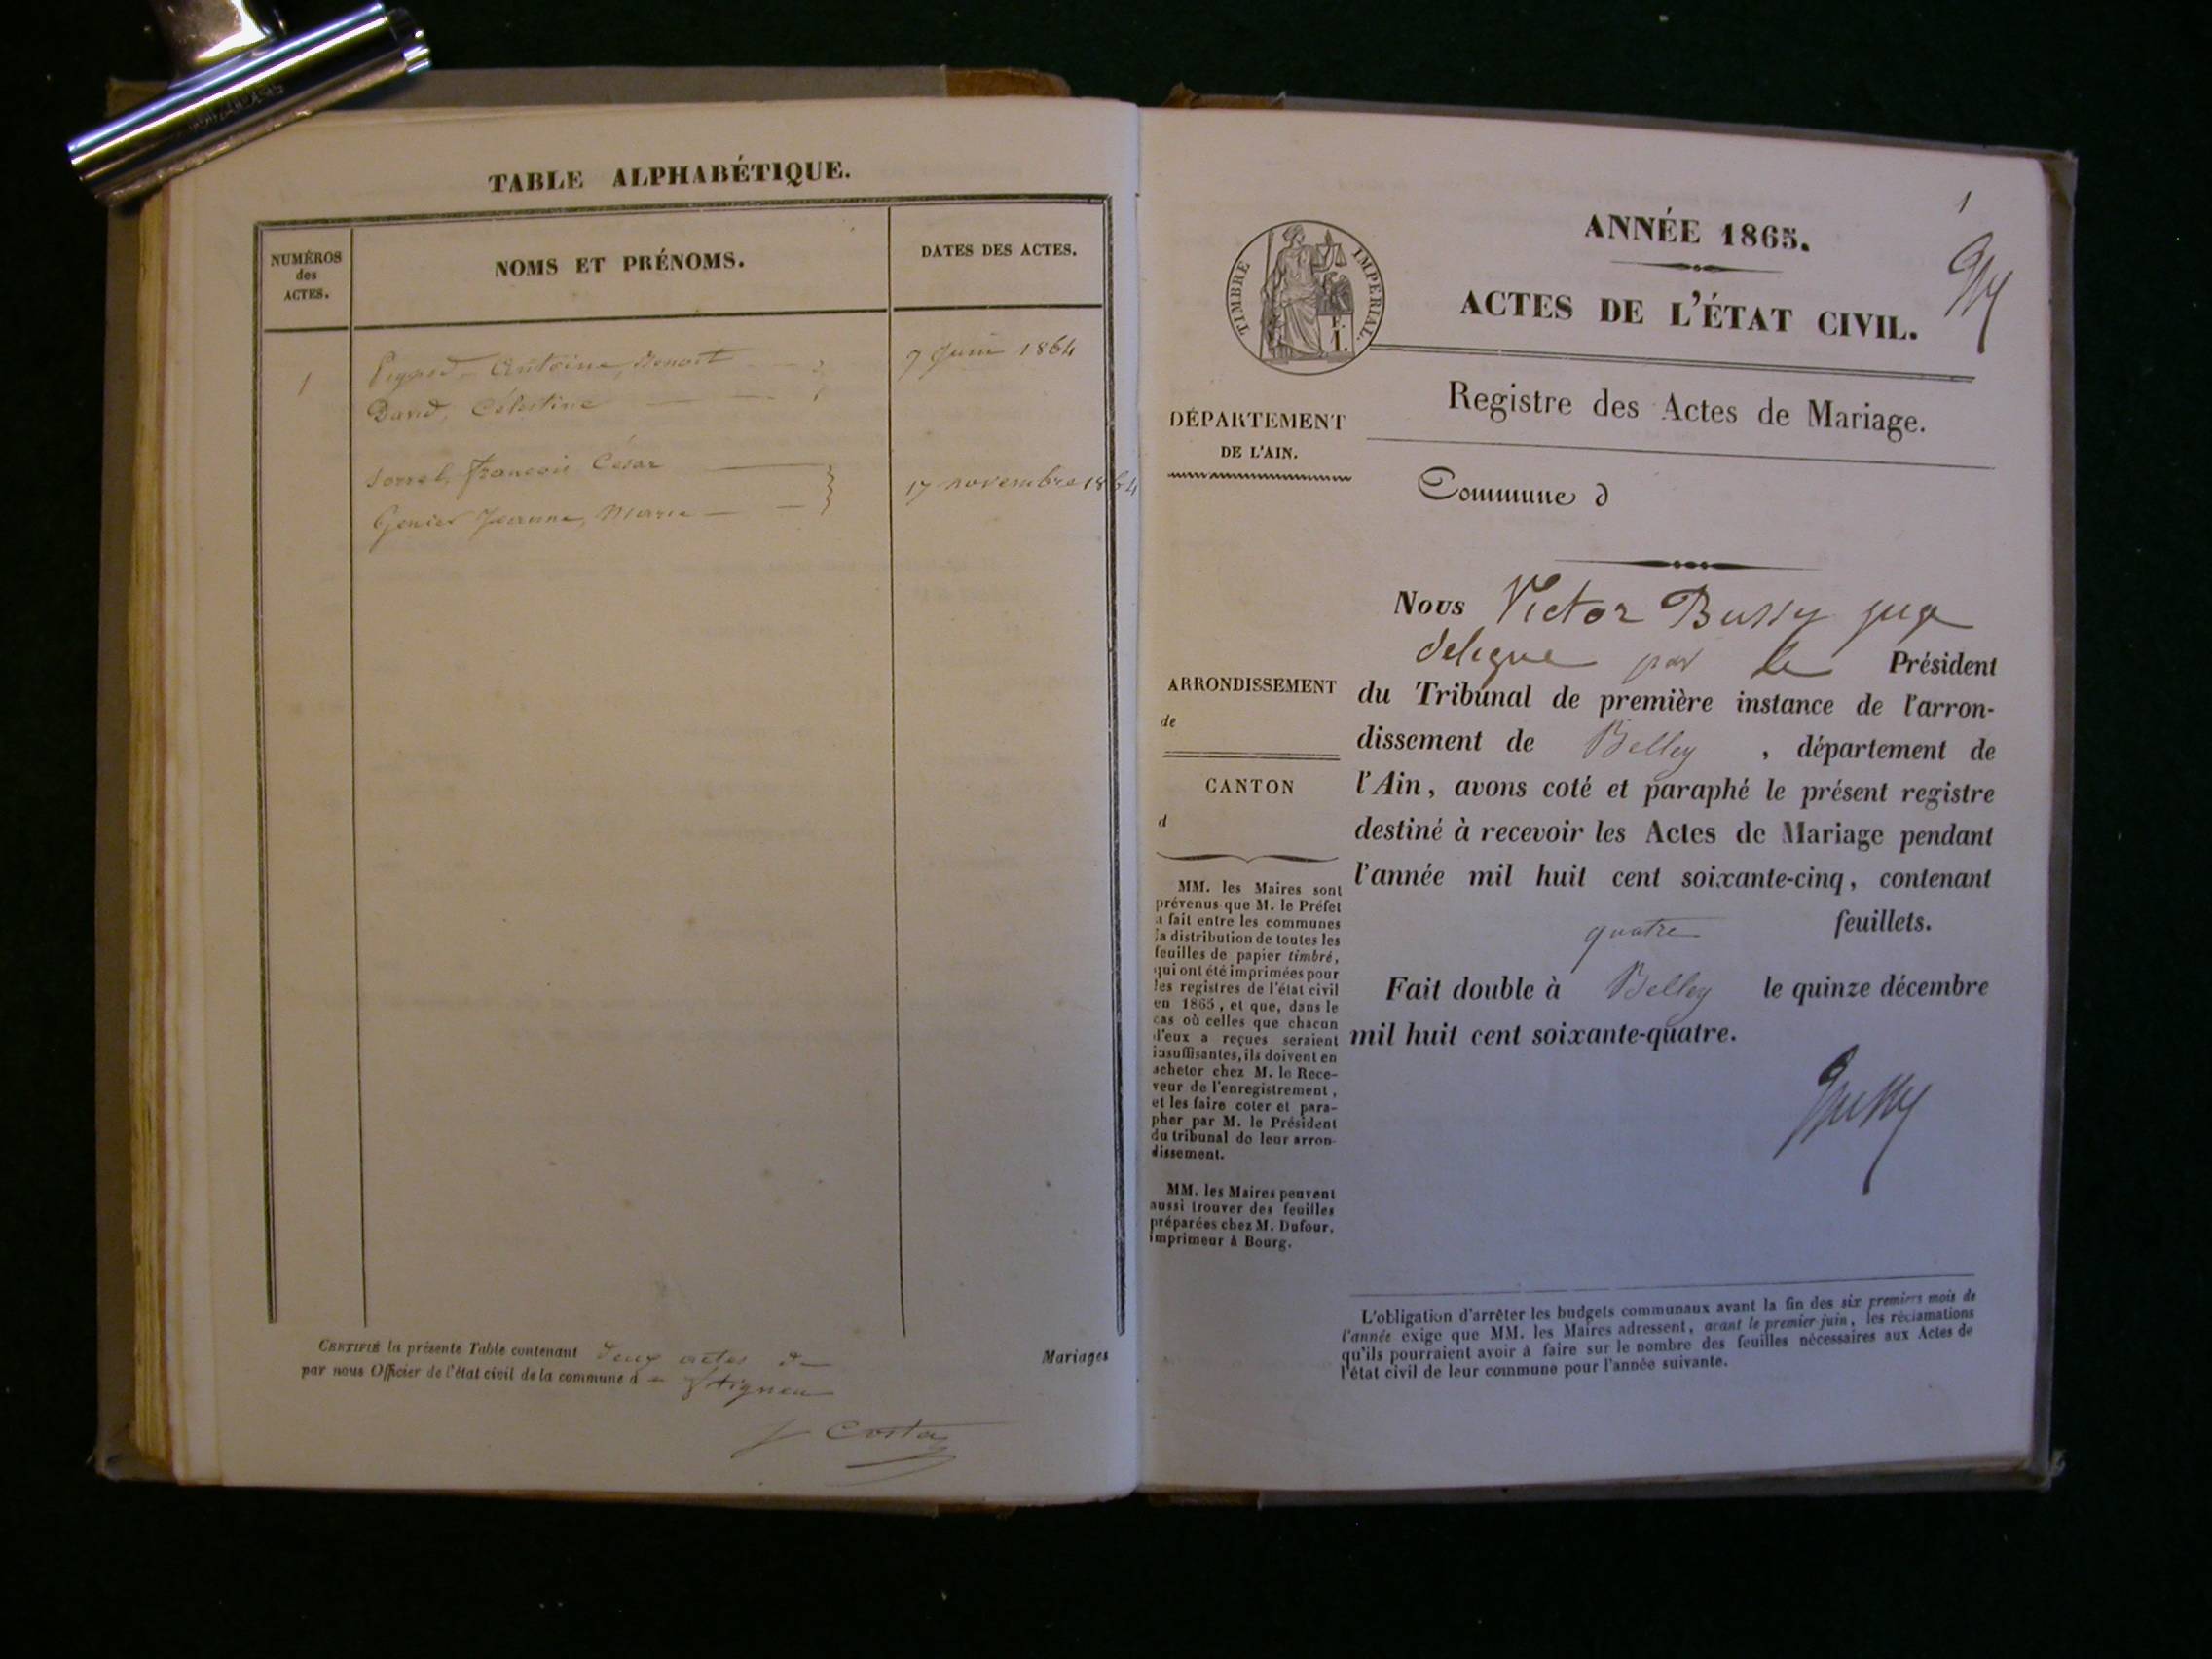 TABLE ALPHABÉTIQUE.
NUMÉROS
des
ACTES.
NOMS ET PRÉNOMS.
DATES DES ACTES.
1
Antoine, Benoit
9 Juin 1864
David, Célestine
Sorrel, François César
17 novembre 1864
Genier Jeanne, Marie
CERTIFIÉ la présente Table contenant deux actes de Mariages
par nous Officier de l'état civil de la commune d
Costaz
1
ANNÉE 1865.
ACTES DE L'ÉTAT CIVIL.
TIMBRE IMPÉRIAL.
F.
1.
Registre des Actes de Mariage.
DÉPARTEMENT
DE L'AIN.
Commune d
Nous Victor Bussy juge
délégué par le Président
du Tribunal de première instance de l'arron-
dissement de Belley, département de
l'Ain, avons coté et paraphé le présent registre
destiné à recevoir les Actes de Mariage pendant
l'année mil huit cent soixante-cinq, contenant
quatre feuillets.
Fait double à Belley le quinze décembre
mil huit cent soixante-quatre.
Bussy
ARRONDISSEMENT
de
CANTON
d
MM. les Maires sont
prévenus que M. le Préfet
a fait entre les communes
la distribution de toutes les
feuilles de papier timbré,
qui ont été imprimées pour
les registres de l'état civil
en 1865, et que, dans le
cas où celles que chacun
d'eux a reçues seraient
insuffisantes, ils doivent en
acheter chez M. le Rece-
veur de l'enregistrement,
et les faire coter et para-
pher par M. le Président
du tribunal de leur arron-
dissement.
MM. les Maires peuvent
aussi trouver des feuilles
préparées chez M. Dufour,
imprimeur à Bourg.
L'obligation d'arrêter les budgets communaux avant la fin des six premiers mois de
l'année exige que MM. les Maires adressent, avant le premier juin, les réclamations
qu'ils pourraient avoir à faire sur le nombre des feuilles nécessaires aux Actes de
l'état civil de leur commune pour l'année suivante.